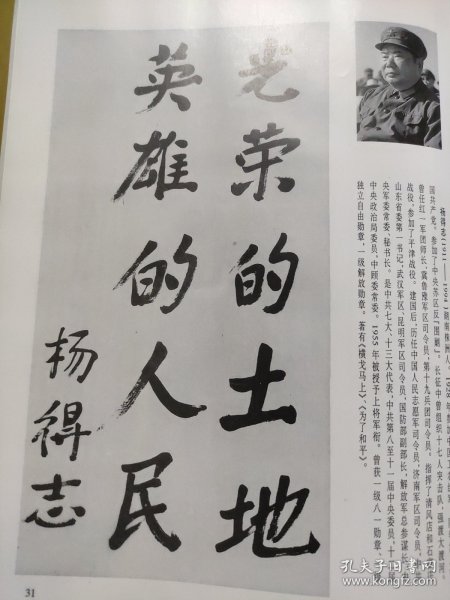 光荣的土地
英雄的人民
杨得志
国共产党。参加了中央苏区反“围剿”。长征中曾组织十七人突击队，强渡大渡河。
曾任红一军团师长，冀鲁豫军区司令员，第十九兵团司令员。指挥了清风店和石
战役，参加了平津战役。建国后，历任中国人民志愿军司令员，济南军区司令员，
山东省委第一书记，武汉军区、昆明军区司令员，国防部副部长，解放军总参谋长，
央军委常委、秘书长。是中共七大、十三大代表，中共第八至十一届中央委员，十
中央政治局委员，中顾委常委。1955年被授予上将军衔。曾获一级八一勋章、
独立自由勋章、一级解放勋章。著有《横戈马上》、《为了和平》。
31
孔夫子旧书网